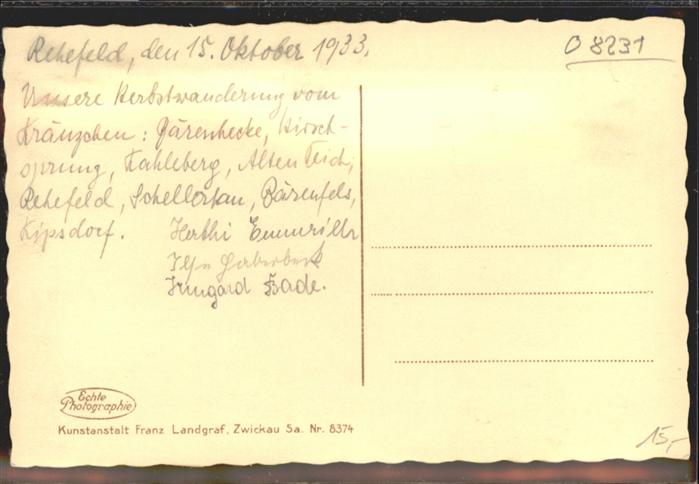 Rehefeld, den 15. Oktober 1933.
O 8231
Unsere Herbstwanderung vom
Kränzchen: Bärenhecke, Hirsch-
sprung, Kahleberg, Alten Teich,
Rehefeld, Schellerhau, Bärenfels,
Kipsdorf. Herthi
Irmgard Bade.
Echte
Photographie
Kunstanstalt Franz Landgraf, Zwickau Sa. Nr. 8374
15,-